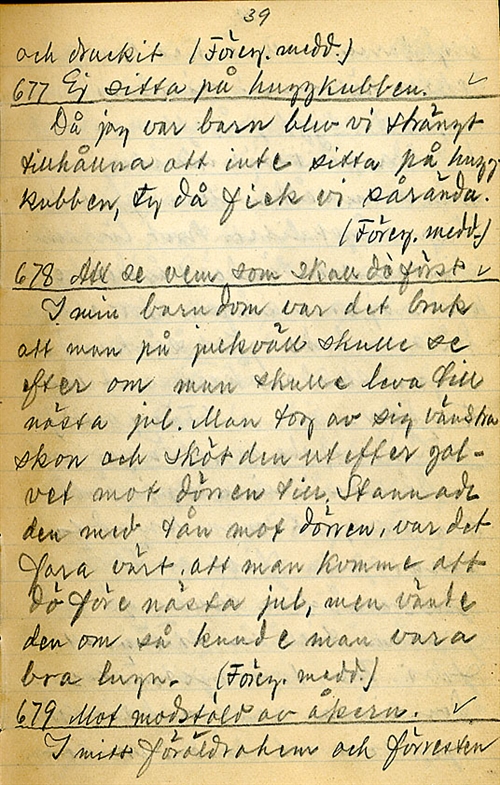 39
och druckit (Föreg. medd.)
677 Ej sitta på huggkubben. ✓
Då jag var barn blev vi strängt
tillhållna att inte sitta på hugg-
kubben, ty då fick vi sårända.
(Föreg. medd.)
678 Att se vem som skall dö först ✓
I min barndom var det bruk
att man på julkväll skulle se
efter om man skulle leva till
nästa jul. Man tog av sig vänstra
skon och sköt den utefter gol-
vet mot dörren till. Stannade
den med tån mot dörren, var det
fara värt, att man komme att
dö före nästa jul, men vände
den om så kunde man vara
bra lugn. (Föreg. medd.)
679 Mot modstöld av åkern. ✓
I mitt föräldrahem och förresten